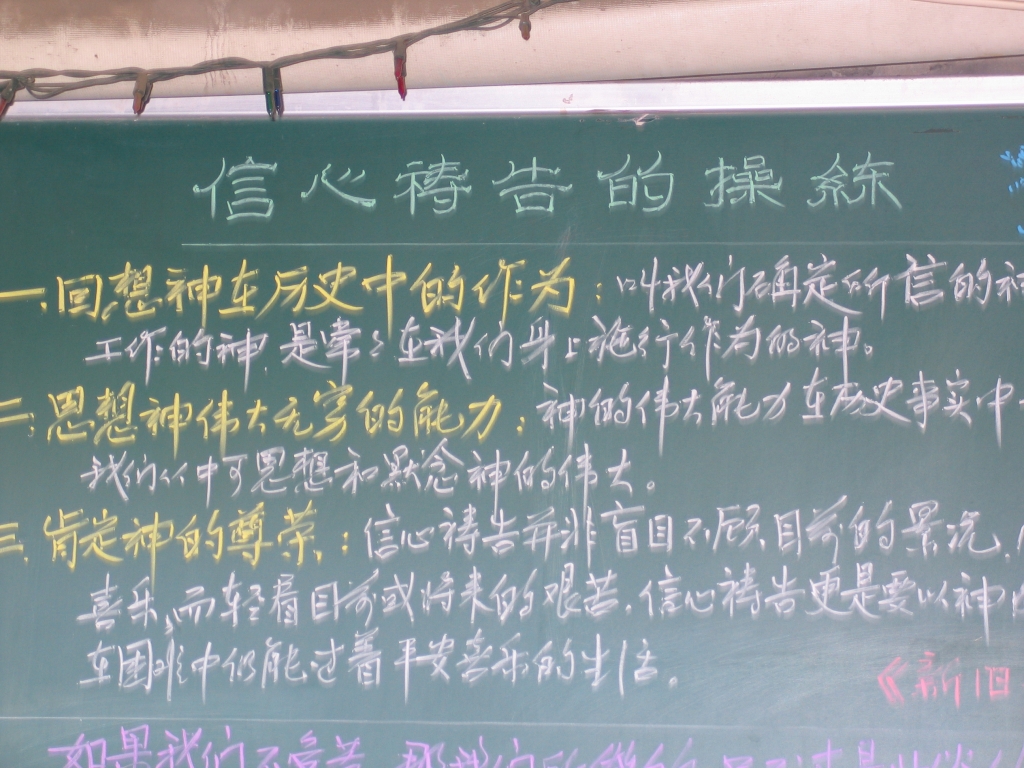 信心祷告的操練
一.回想神在历史中的作为:叫我们确定所信的神
工作的神,是常々在我们身上施行作为的神。
二.思想神伟大无穷的能力:神的伟大能力在历史事实中
我们从中可思想和默念神的伟大。
三.肯定神的尊荣:信心祷告并非盲目不顾目前的景况,
喜乐,而轻看目前或将来的艰苦.信心祷告更是要以神
在困难中仍能过着平安喜乐的生活。
《新旧
如果我们不